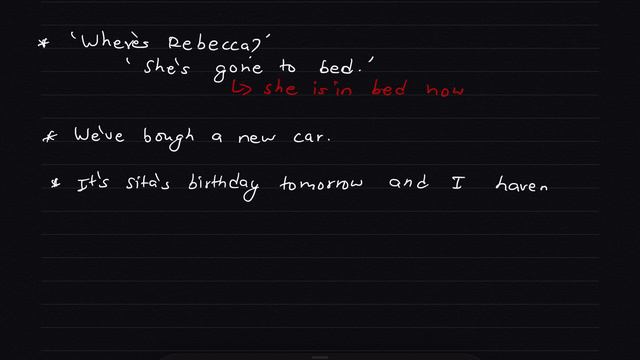 * 'Where's Rebecca?'
'She's gone to bed.'
↳ she is in bed now
* We've bough a new car.
* It's sita's birthday tomorrow and I haven